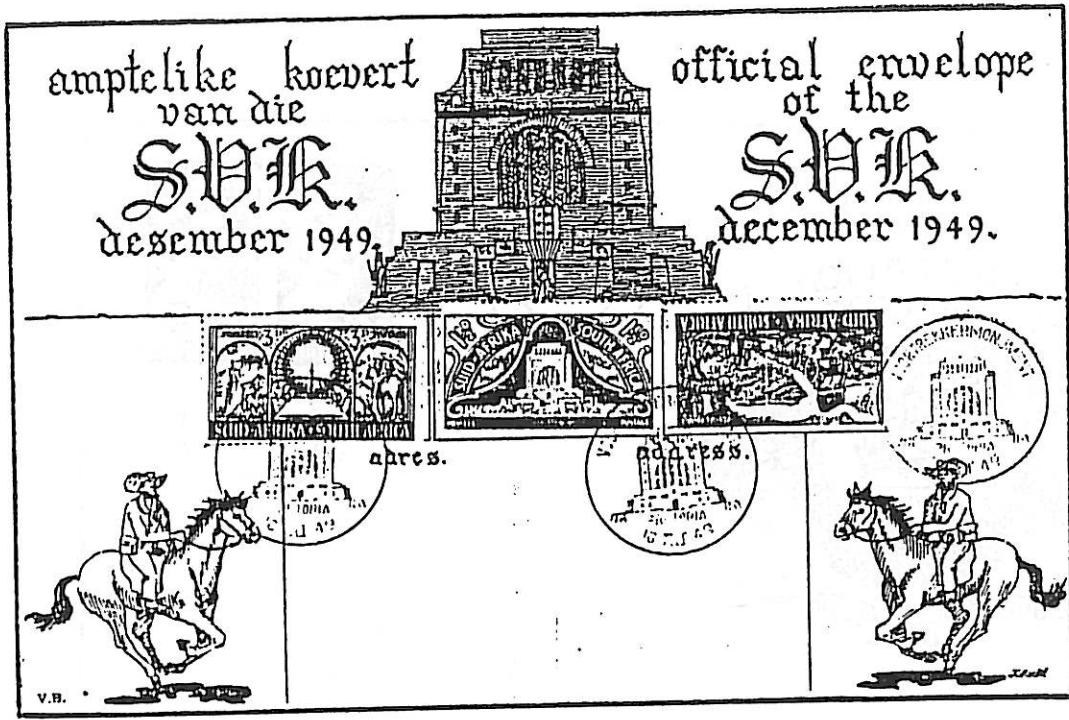 amptelike koevert
van die
S.V.K.
desember 1949.
official envelope
of the
S.V.K.
december 1949.
3 3
SUID-AFRIKA SOUTH AFRICA
SUID-AFRIKA SOUTH AFRICA
SUID-AFRIKA
adres.
address.
V.B.